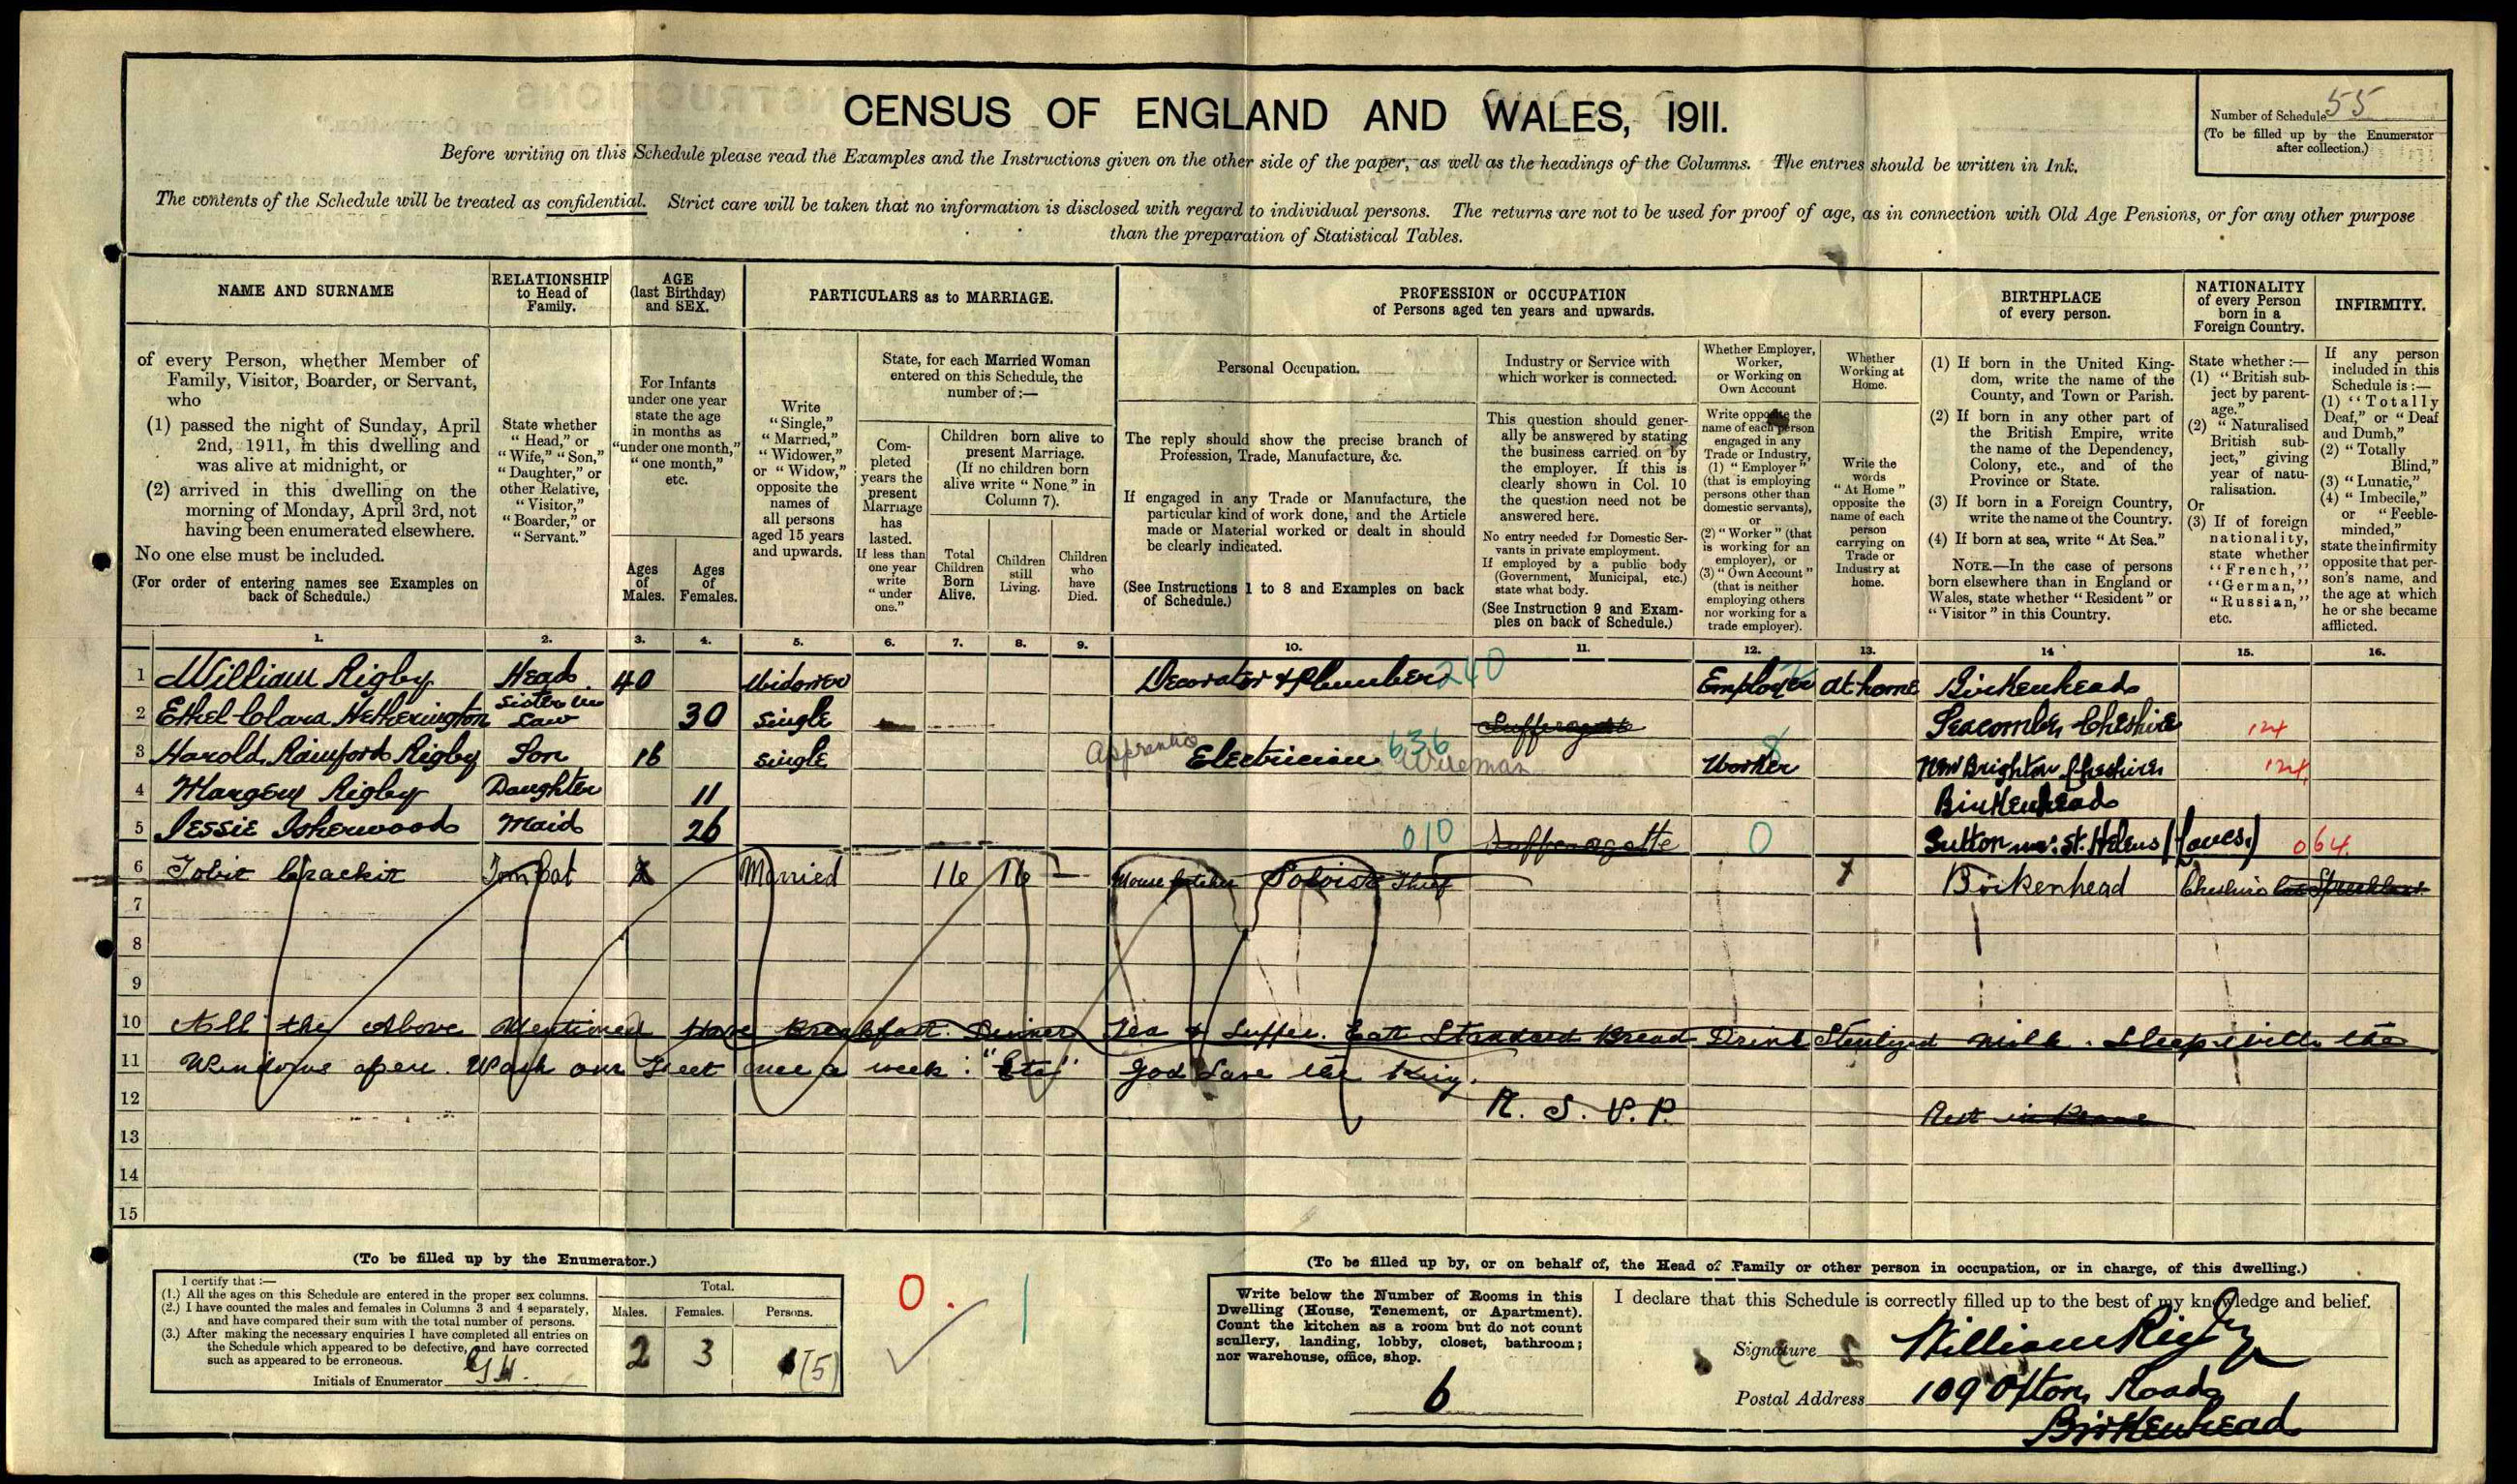 CENSUS OF ENGLAND AND WALES, 1911.
Number of Schedule 55
(To be filled up by the Enumerator after collection.)
Before writing on this Schedule please read the Examples and the Instructions given on the other side of the paper, as well as the headings of the Columns. The entries should be written in Ink.
The contents of the Schedule will be treated as confidential. Strict care will be taken that no information is disclosed with regard to individual persons. The returns are not to be used for proof of age, as in connection with Old Age Pensions, or for any other purpose
than the preparation of Statistical Tables.
NAME AND SURNAME
of every Person, whether Member of
Family, Visitor, Boarder, or Servant,
who
(1) passed the night of Sunday, April
2nd, 1911, in this dwelling and
was alive at midnight, or
(2) arrived in this dwelling on the
morning of Monday, April 3rd, not
having been enumerated elsewhere.
No one else must be included.
(For order of entering names see Examples on
back of Schedule.)
RELATIONSHIP
to Head of
Family.
State whether
"Head," or
"Wife," "Son,"
"Daughter," or
other Relative,
"Visitor,"
"Boarder," or
"Servant."
AGE
(last Birthday)
and SEX.
For Infants
under one year
state the age
in months as
"under one month,"
"one month,"
etc.
Ages
of
Males.
Ages
of
Females.
PARTICULARS as to MARRIAGE.
Write
"Single,"
"Married,"
"Widower,"
or "Widow,"
opposite the
names of
all persons
aged 15 years
and upwards.
State, for each Married Woman
entered on this Schedule, the
number of:—
Com-
pleted
years the
present
Marriage
has
lasted.
If less than
one year
write
"under
one."
Children born alive to
present Marriage.
(If no children born
alive write "None" in
Column 7).
Total
Children
Born
Alive.
Children
still
Living.
Children
who
have
Died.
PROFESSION or OCCUPATION
of Persons aged ten years and upwards.
Personal Occupation.
The reply should show the precise branch of
Profession, Trade, Manufacture, &c.
If engaged in any Trade or Manufacture, the
particular kind of work done, and the Article
made or Material worked or dealt in should
be clearly indicated.
(See Instructions 1 to 8 and Examples on back
of Schedule.)
Industry or Service with
which worker is connected.
This question should gener-
ally be answered by stating
the business carried on by
the employer. If this is
clearly shown in Col. 10
the question need not be
answered here.
No entry needed for Domestic Ser-
vants in private employment.
If employed by a public body
(Government, Municipal, etc.)
state what body.
(See Instruction 9 and Exam-
ples on back of Schedule.)
Whether Employer,
Worker,
or Working on
Own Account
Write opposite the
name of each person
engaged in any
Trade or Industry,
(1) "Employer"
(that is employing
persons other than
domestic servants),
or
(2) "Worker" (that
is working for an
employer), or
(3) "Own Account"
(that is neither
employing others
nor working for a
trade employer).
Whether
Working at
Home.
Write the
words
"At Home"
opposite the
name of each
person
carrying on
Trade or
Industry at
home.
BIRTHPLACE
of every person.
(1) If born in the United King-
dom, write the name of the
County, and Town or Parish.
(2) If born in any other part of
the British Empire, write
the name of the Dependency,
Colony, etc., and of the
Province or State.
(3) If born in a Foreign Country,
write the name of the Country.
(4) If born at sea, write "At Sea."
NOTE.—In the case of persons
born elsewhere than in England or
Wales, state whether "Resident" or
"Visitor" in this Country.
NATIONALITY
of every Person
born in a
Foreign Country.
State whether:—
(1) "British sub-
ject by parent-
age."
(2) "Naturalised
British sub-
ject," giving
year of natu-
ralisation.
Or
(3) If of foreign
nationality,
state whether
"French,"
"German,"
"Russian,"
etc.
INFIRMITY.
If any person
included in this
Schedule is:—
(1) "Totally
Deaf," or "Deaf
and Dumb,"
(2) "Totally
Blind,"
(3) "Lunatic,"
(4) "Imbecile,"
or "Feeble-
minded,"
state the infirmity
opposite that per-
son's name, and
the age at which
he or she became
afflicted.
1. 2. 3. 4. 5. 6. 7. 8. 9. 10. 11. 12. 13. 14 15. 16.
1 William Rigby Head 40 Widower Decorator & Plumber 240 Employer at home Birkenhead
2 Ethel Clara Hetherington Sister in Law 30 Single Suffragette Seacombe Cheshire 124
3 Harold Rainford Rigby Son 16 Single Apprentice Electrician 636 Wireman Worker 8 New Brighton Cheshire 124
4 Margery Rigby Daughter 11 Birkenhead
5 Jessie Isherwood Maid 26 010 Suffragette 0 Sutton nr. St. Helens (Lancs.) 064
6 Tobit Crackit Tom Cat Married 16 16 — Mouse Catcher Soloist Thief Birkenhead Cheshire Cat Speechless
7
8
9
10 All the Above Mentioned Have Breakfast. Dinner, Tea & Supper. Eat Standard Bread Drink Sterilized Milk. Sleep with the
11 Windows open. Wash our Feet once a week. "Etc" God Save the King.
12 R. S. V. P. Rest in Peace
13
14
15
(To be filled up by the Enumerator.)
I certify that:—
(1.) All the ages on this Schedule are entered in the proper sex columns.
(2.) I have counted the males and females in Columns 3 and 4 separately,
and have compared their sum with the total number of persons.
(3.) After making the necessary enquiries I have completed all entries on
the Schedule which appeared to be defective, and have corrected
such as appeared to be erroneous.
Initials of Enumerator
Total.
Males. Females. Persons.
2 3 (5)
0.
(To be filled up by, or on behalf of, the Head of Family or other person in occupation, or in charge, of this dwelling.)
Write below the Number of Rooms in this
Dwelling (House, Tenement, or Apartment).
Count the kitchen as a room but do not count
scullery, landing, lobby, closet, bathroom;
nor warehouse, office, shop.
6
I declare that this Schedule is correctly filled up to the best of my knowledge and belief.
Signature William Rigby
Postal Address 109 Oxton Road
Birkenhead